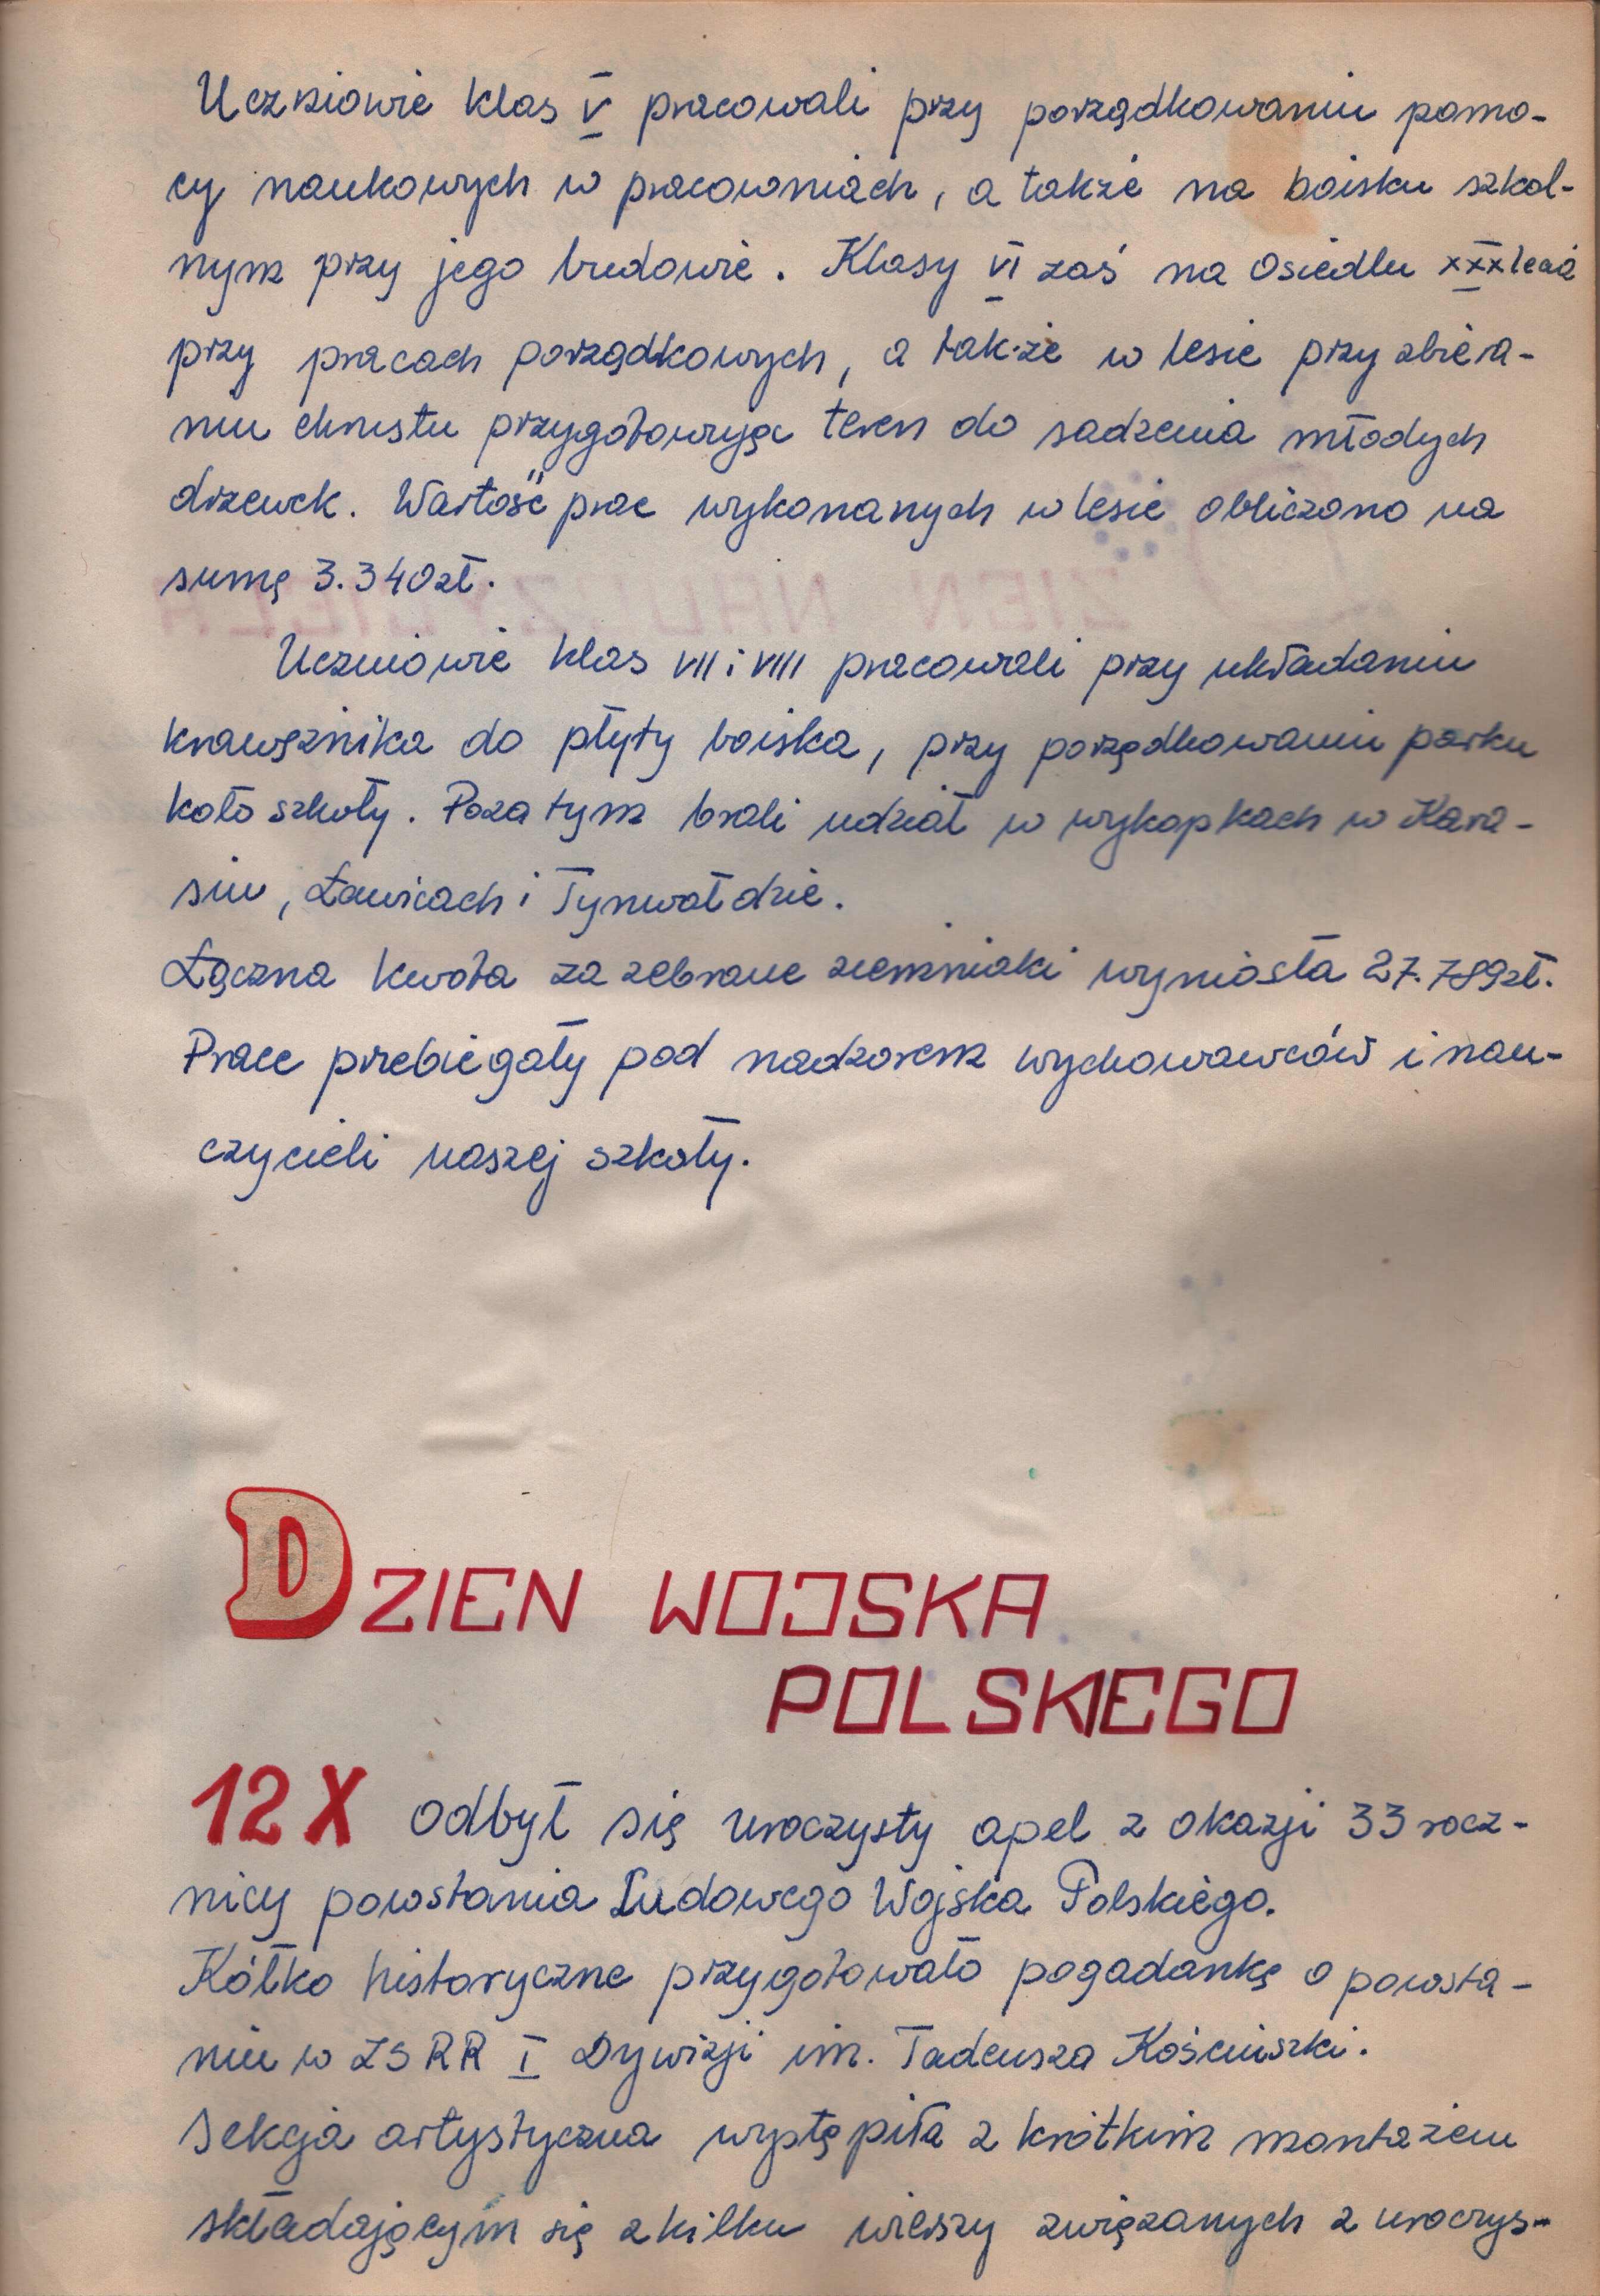 Uczniowie klas V pracowali przy porządkowaniu pomo-
cy naukowych w pracowniach, a także na boisku szkol-
nym przy jego budowie. Klasy VI zaś na Osiedlu XXXlecia
przy pracach porządkowych, a także w lesie przy zbiera-
niu chrustu przygotowując teren do sadzenia młodych
drzewek. Wartość prac wykonanych w lesie obliczono na
sumę 3.340zł.
Uczniowie klas VII i VIII pracowali przy układaniu
krawężnika do płyty boiska, przy porządkowaniu parku
koło szkoły. Poza tym brali udział w wykopkach w Kara-
siu, Ławicach i Tynwałdzie.
Łączna kwota za zebrane ziemniaki wyniosła 27.789zł.
Prace przebiegały pod nadzorem wychowawców i nau-
czycieli naszej szkoły.
DZIEN WOJSKA
POLSKIEGO
12 X odbył się uroczysty apel z okazji 33 rocz-
nicy powstania Ludowego Wojska Polskiego.
Kółko historyczne przygotowało pogadankę o powsta-
niu w ZSRR I Dywizji im. Tadeusza Kościuszki.
Sekcja artystyczna wystąpiła z krótkim montażem
składającym się z kilku wierszy związanych z uroczys-